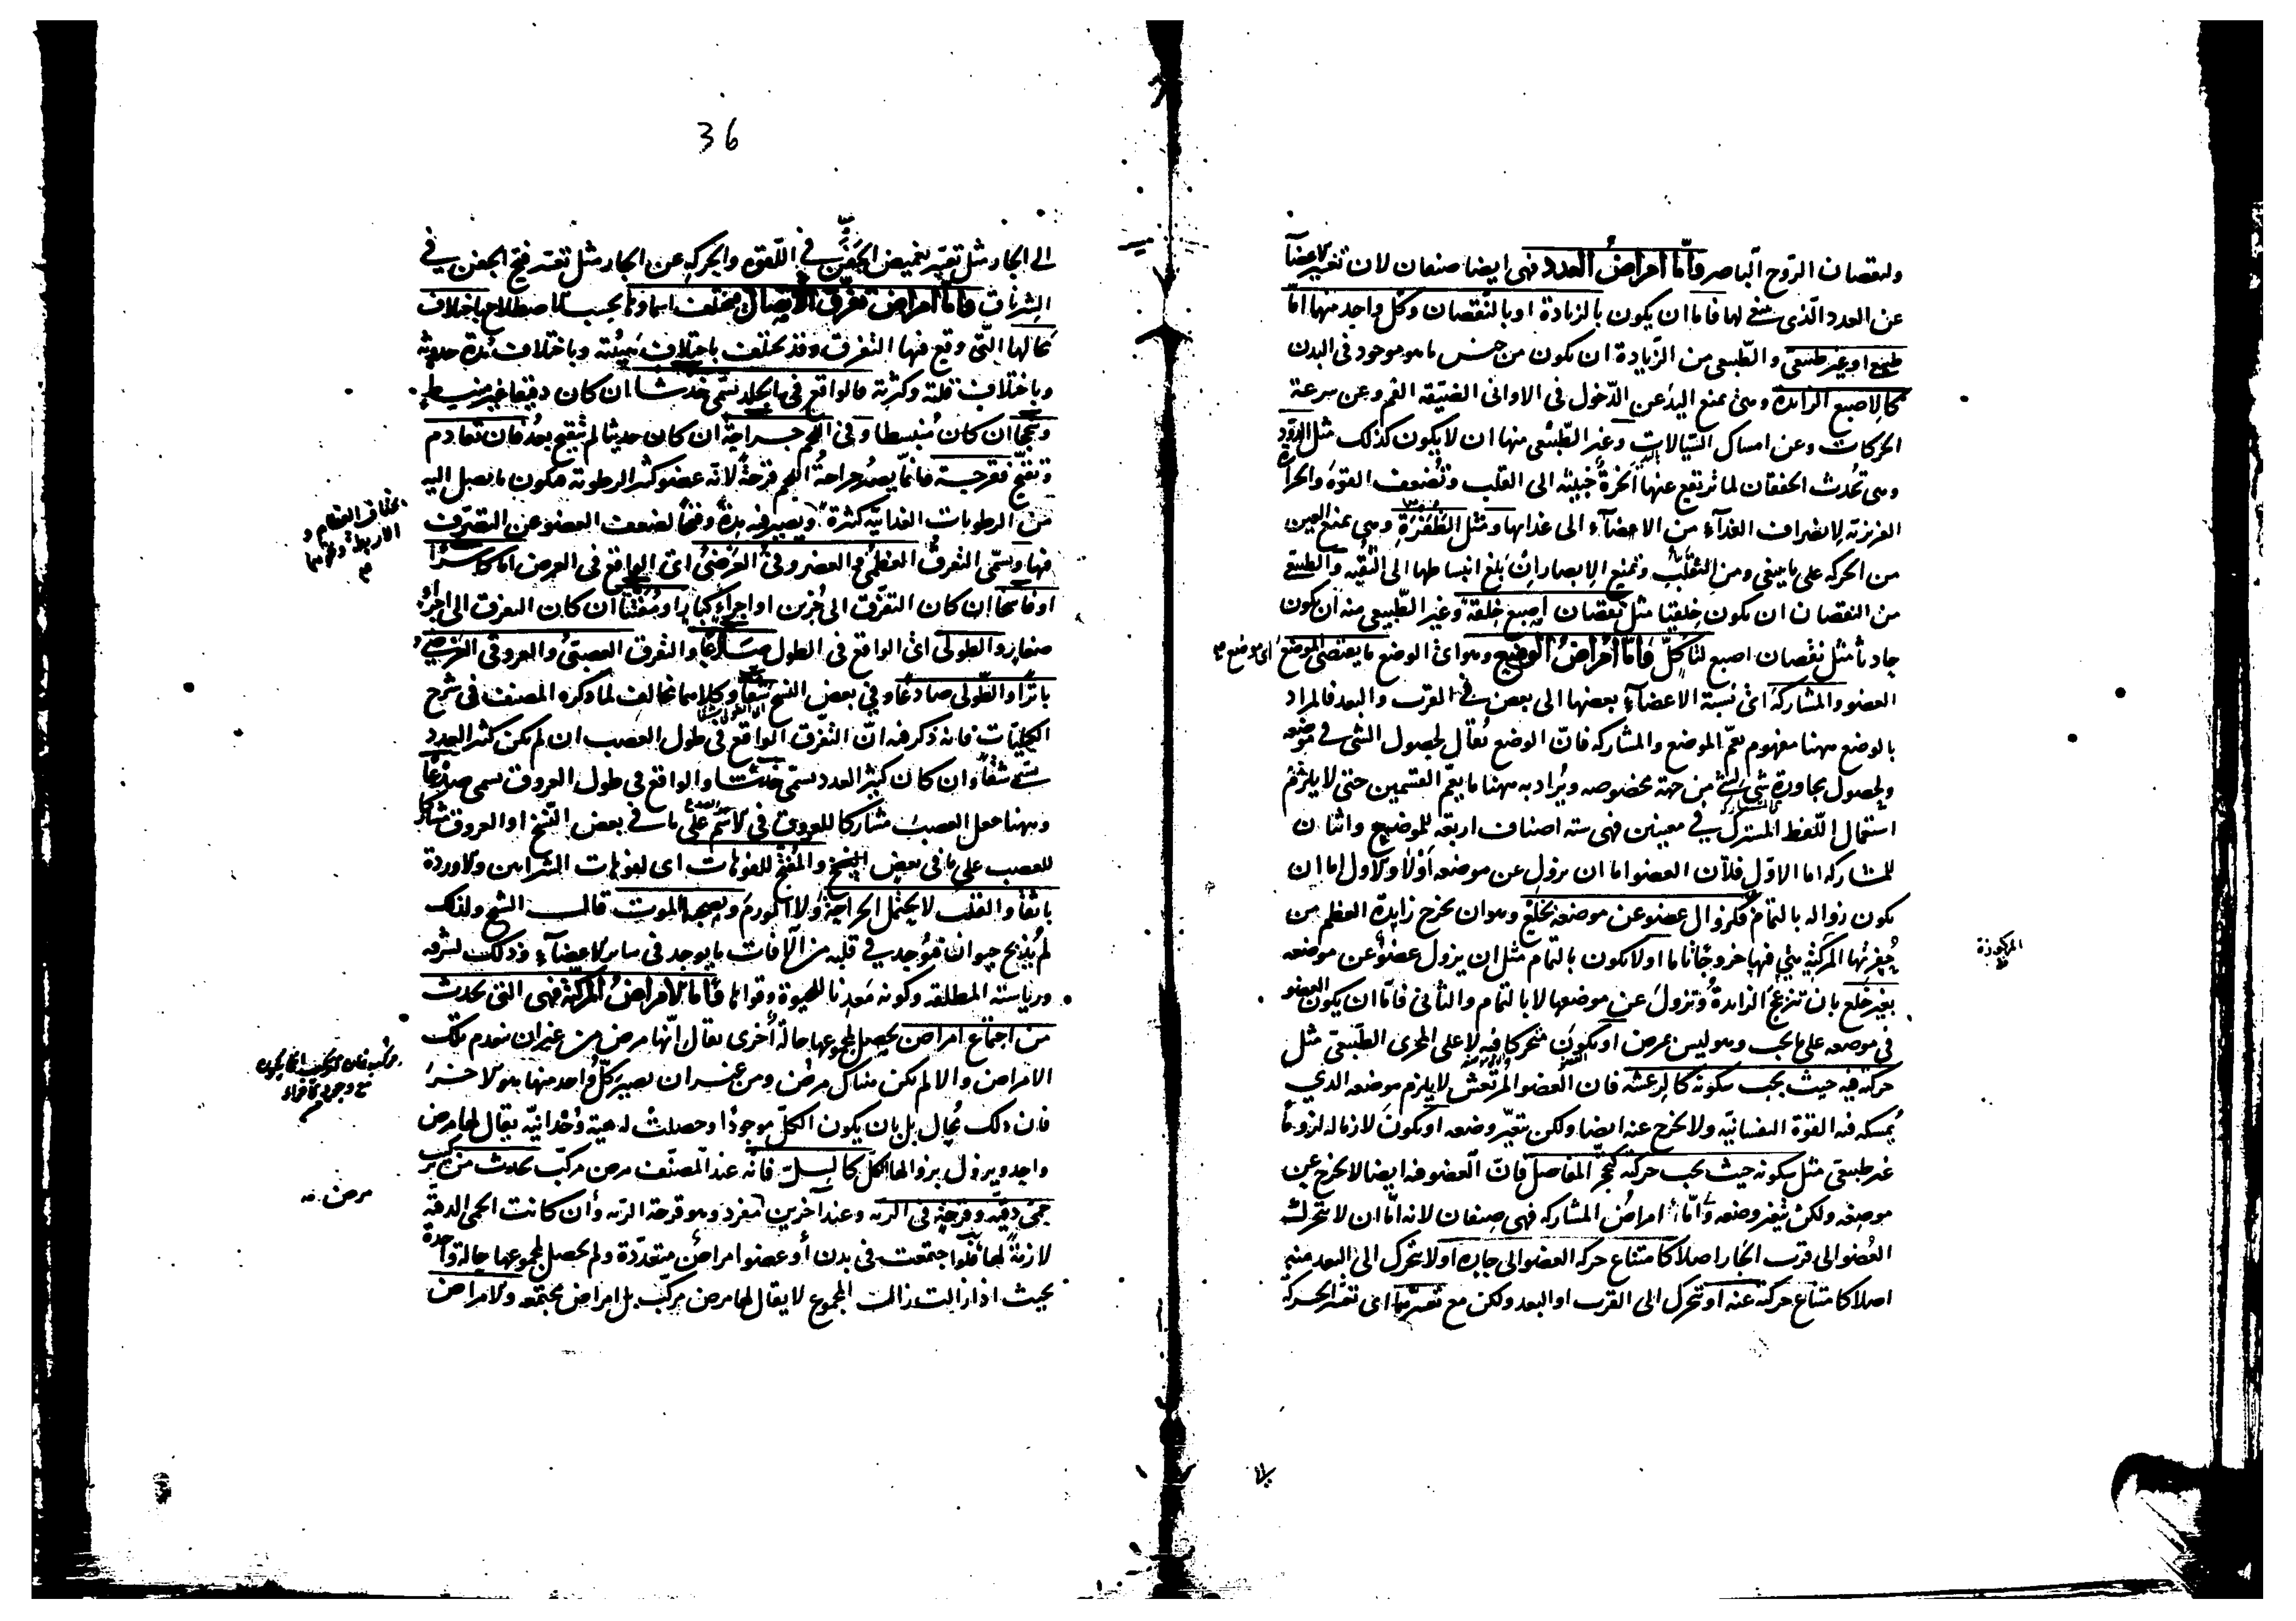 ولنقصان الروح الباصر وامّا امراضُ العدد فهى ايضا صنفان لان تغير الاعضآ
عن العدد الّذى ينبغى لها فاما ان يكون بالزيادة او بالنّقصان وكل واحد منها امّا
طبيعى او غير طبيعى والطّبيعى من الزّيادة ان يكون من جنس ما هو موجود فى البدن
كالاصبع الزائدة وهى تمنع اليد عن الدّخول فى الاوانى الضيّقه الفم وعن سرعة
الحركات وعن امساك السّيالات وغير الطّبيعى منها ان لا يكون كذلك مثل الدّود
وهى تحُدث الخفقان لما ترتفع عنها ابخرةٌ خبيثه الى القلب وتُضعف القوة والحرارة
الغريزية لانصراف الغدآء من الاعضآء الى غدايها ومثل الظَّفَرَةِ وهى تمنع العين
من الحركه على ما ينبغى ومن التقلّب وتمنع الابصار ان بلغ انبساطها الى الثقبه والطبيعى
من النقصان ان يكون خِلقيا مثل نقصان اصبع خلقة وغير الطّبيعى منه ان يكون
حادثا مثل نقصان اصبع لتاكل وامّا امراضُ الوضع وهو اى الوضع ما يقتضى الموضع اى موضع
العضو والمشاركة اى نسبة الاعضآء بعضها الى بعض فى القرب والبعد فالمراد
بالوضع ههنا مفهوم يعمّ الموضع والمشاركه فانّ الوضع يُقال لحصول الشى فى موضعه
ولحصول مجاورة شى لشى من جهة مخصوصه ويُراد به ههنا ما يعمّ القسمين حتى لا يلزم
استعمال اللّفظ المشترك فى معنيين فهى سته اصناف اربعه للموضع واثنان
للمشاركه اما الاوّل فلان العضو اما ان يزول عن موضعه اوْلا والاول اما ان
يكون زواله بالتمام كزوال عضو عن موضعه بخلع وهو ان تخرج زايدة العظم من
حُفرتها المركبة هى فيها خروجًا تاما او لا يكون بالتمام مثل ان يزول عضو عن موضعه
بغير خلع بان تنزعج الزايدةُ وتزول عن موضعها لا بالتمام والثانى فامّا ان يكون العضو
فى موضعه على ما يجب وهو ليس بمرض او يكون متحركا فيه لا على المجرى الطبيعى مثل
حركته فيه حيث يجب سكونه كالرعشه فان العضو المرتعش لا يلزم موضعه الذي
يُمسكه فيه القوة النفسانيّه ولا يخرج عنه ايضا ولكن يتغيّر وضعه او يكون لازما له لزوما
غير طبيعى مثل سكونه حيث يجب حركته كتحجّر المفاصل فانّ العضو فيه ايضا لا يخرج عن
موضعه ولكن يتغير وضعه وامّا امراضُ المشاركه فهى صنفان لانه امّا ان لا يتحرك
العُضو الى قرب الجار اصلا كامتناع حركه العضو الى جاره او لا يتحرك الى البعد منه
اصلا كامتناع حركته عنه او يتحرك الى القرب او البعد ولكن مع تعسّرٍ ما اى تعسّر الحركة
المركوزة
36
الى الجار مثل تعسّر تغميض الجفنين فى اللّقوه والحركه عن الجار مثل تعسّر فتح الجفن فى
الشرناق فامّا امراض تفرّق الاتصال فمختلف اسماوها بحسب الاصطلاح باختلاف
محالها الّتى وقع فيها التفرق وقد تختلف باختلاف هيئته وباختلاف مُدة حدوثه
وباختلاف قلته وكثرته فالواقع فى الجلد يسمّى خدشا ان كان دقيقا غير منبسط
وسحجا ان كان مُنبسطا وفى اللحم جراحةً ان كان حديثا لم يتقيح بعدُ فان تقادم
وتقيّح فقرحة فانّما يصير جراحةُ اللحم قرحةً لانّه عضو كثير الرطوبة فيكون ما يصل اليه
من الرطوبات الغدائيّه كثيرة ويصير فيه مِدةً وقيحًا لضعف العضو عن التصرّف
فيها ويسمّى التفرقُ العظمىُ والغضروفىُ العَرَضىُ اى الواقع فى العرض اما كسْرًا
او فاسخًا ان كان التفرّق الى جُزين او اجزاءٍ كبارٍ او مُفتّتا ان كان التفرق الى اجزاء
صغار والطولىُ اى الواقع فى الطول صَادعًا والتفرق العصبىُ والعروقى العَرَضىُ
باترًا والطّولى صادعًا وفى بعض النسخ شقًا وكلاهما مخالف لما ذكره المصنف فى شرح
الكليّات فانه ذكر فيه انّ التفرّق الواقع فى طول العصب ان لم يكن كثير العدد
يسمّى شقًا وان كان كثير العدد يسمّى شدخا والواقع فى طول العروق يسمى صَدْعًا
وههنا جعل العصبَ مشاركا للعروق فى الاسم على ما فى بعض النّسخ او العروق مشاركا
للعصب على ما فى بعض النسخ والمُفتّح للفوهات اى لفوهات الشرايين والاوردة
باثقًا والقلب لا يحتمل الجراحةَ ولا الورمَ ويصحبه الموت قالـ الشيخ ولذلك
لم يُذبح حيوان فوُجد فى قلبه من الآفات ما يوجد فى ساير الاعضآء وذلك لشرفه
ورياسته المطلقه وكونه مَعدِنا للحيوة وقواها فامّا الامراضُ المركّبة فهى التى تحدث
من اجتماع امراضٍ يحصل لمجموعها حالةٌ اُخرى يقال انّها مرض من غير ان يتقدم تلك
الامراض والا لم يكن هناك مرضٌ ومن غير ان يصير كلُّ واحد منها هو الاخرَ
فان ذلك مُحال بل بان يكون الكلّ موجودًا وحصلتْ له هيئة وُحْدانيّه يقال لها مرض
واحد ويزول بزوالها الكل كالسلّ فانّه عند المصنّف مرض مركّب يحدث من تركيب
حمىّ دقيّه وقرحةٍ فى الرّيه وعند آخرين مفرد وهو قرحة الرّيه وان كانت الحمى الدقيّه
لازمةً لها فلو اجتمعت فى بدن او عضو امراضٌ متعدّدة ولم يحصل لمجموعها حالة واحدة
بحيث اذا زالت زالت المجموع لا يقال لها مرض مركّب بل امراض مجتمعه والامراض
بخلاف العظام و
الاربطة وغيرهما
مرض